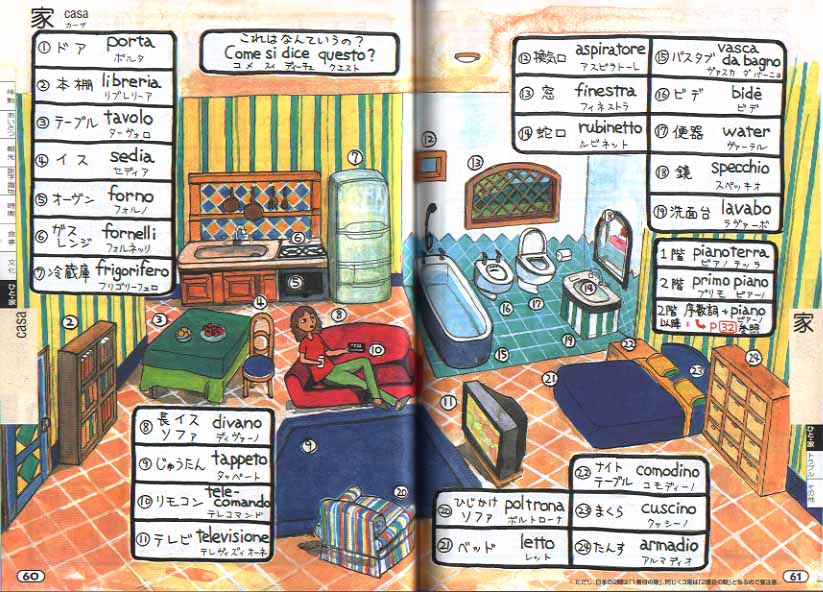 家 casa
カーザ
① ドア porta
ポルタ
② 本棚 libreria
リブレリーア
③ テーブル tavolo
ターヴォロ
④ イス sedia
セディア
⑤ オーヴン forno
フォルノ
⑥ ガスレンジ fornelli
フォルネッリ
⑦ 冷蔵庫 frigorifero
フリゴリーフェロ
これはなんていうの?
Come si dice questo?
コメ スィ ディーチェ クエスト
⑧ 長イスソファ divano
ディヴァーノ
⑨ じゅうたん tappeto
タッペート
⑩ リモコン tele-
comando
テレコマンド
⑪ テレビ televisione
テレヴィズィオーネ
casa
60
⑫ 換気口 aspiratore
アスピラトーレ
⑬ 窓 finestra
フィネストラ
⑭ 蛇口 rubinetto
ルビネット
⑮ バスタブ vasca
da bagno
ヴァスカ ダ バーニョ
⑯ ビデ bidè
ビデ
⑰ 便器 water
ヴァーテル
⑱ 鏡 specchio
スペッキオ
⑲ 洗面台 lavabo
ラヴァーボ
1階 pianoterra
ピアノテッラ
2階 primo piano
プリモ ピアーノ
2階以降: 序数詞+piano
ピアーノ
→P32参照
家
⑳ ひじかけソファ poltrona
ポルトローナ
㉑ ベッド letto
レット
㉒ ナイトテーブル comodino
コモディーノ
㉓ まくら cuscino
クッシーノ
㉔ たんす armadio
アルマディオ
61
①
②
③
④
⑤
⑥
⑦
⑧
⑨
⑩
⑪
⑫
⑬
⑭
⑮
⑯
⑰
⑱
⑲
⑳
㉑
㉒
㉓
㉔
トラブル
その他